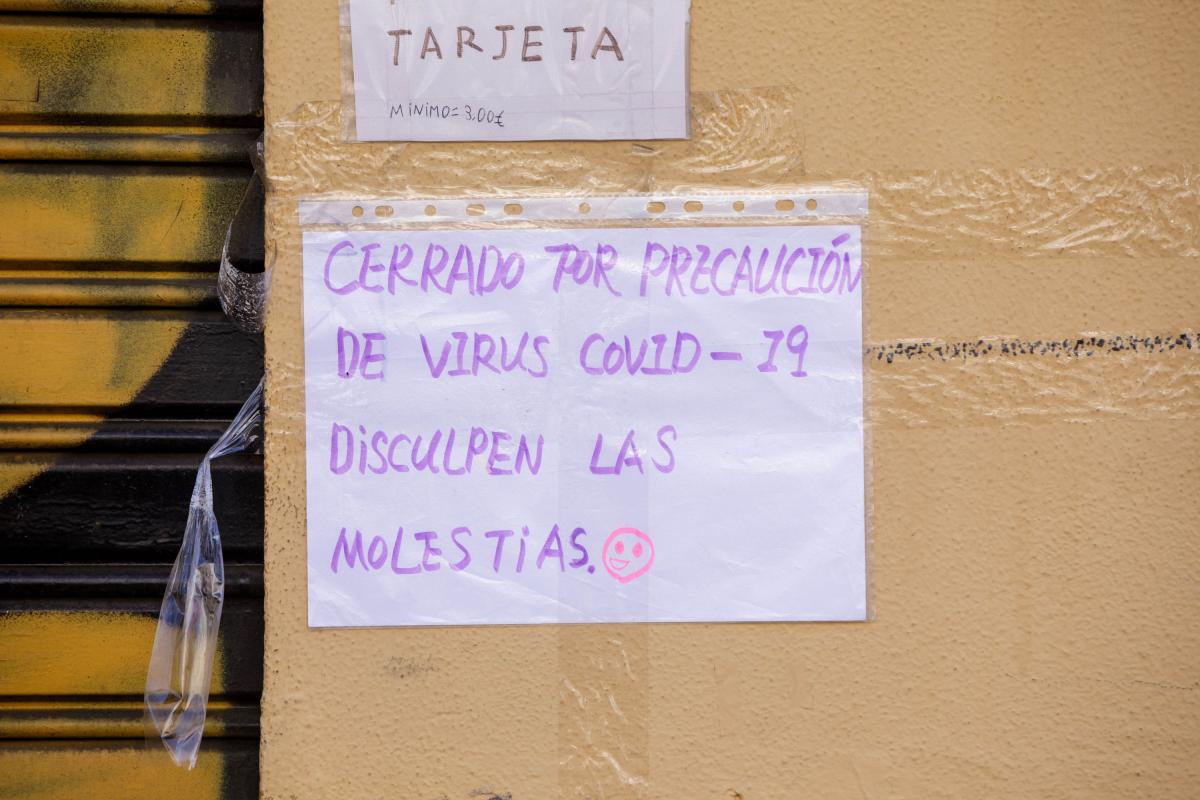 TARJETA
MíNiMO=3,00€
CERRADO POR PRECAUCIÓN
DE VIRUS COVID-19
DiSCULPEN LAS
MOLESTiAS.